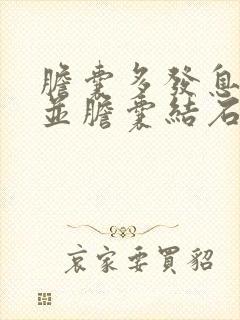 膽囊多發息
並膽囊結石
哀家要買貂